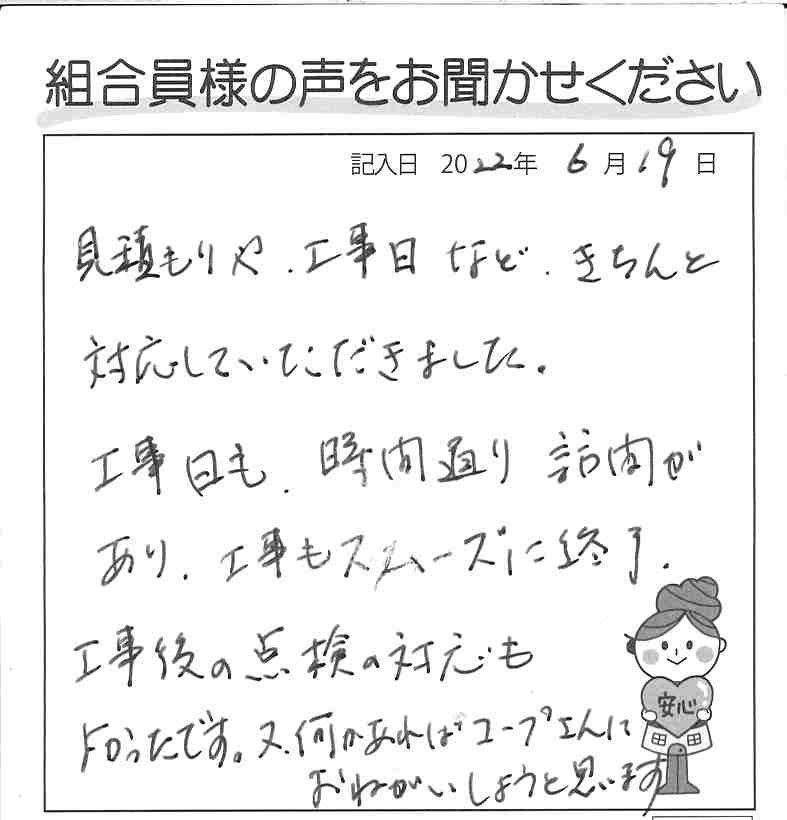 組合員様の声をお聞かせください
記入日 2022年 6月19日
見積もりや、工事日など、きちんと
対応していただきました。
工事日も、時間通り訪問が
あり、工事もスムーズに終了、
工事後の点検の対応も
よかったです。又、何かあればコープさんに
おねがいしようと思います
安心